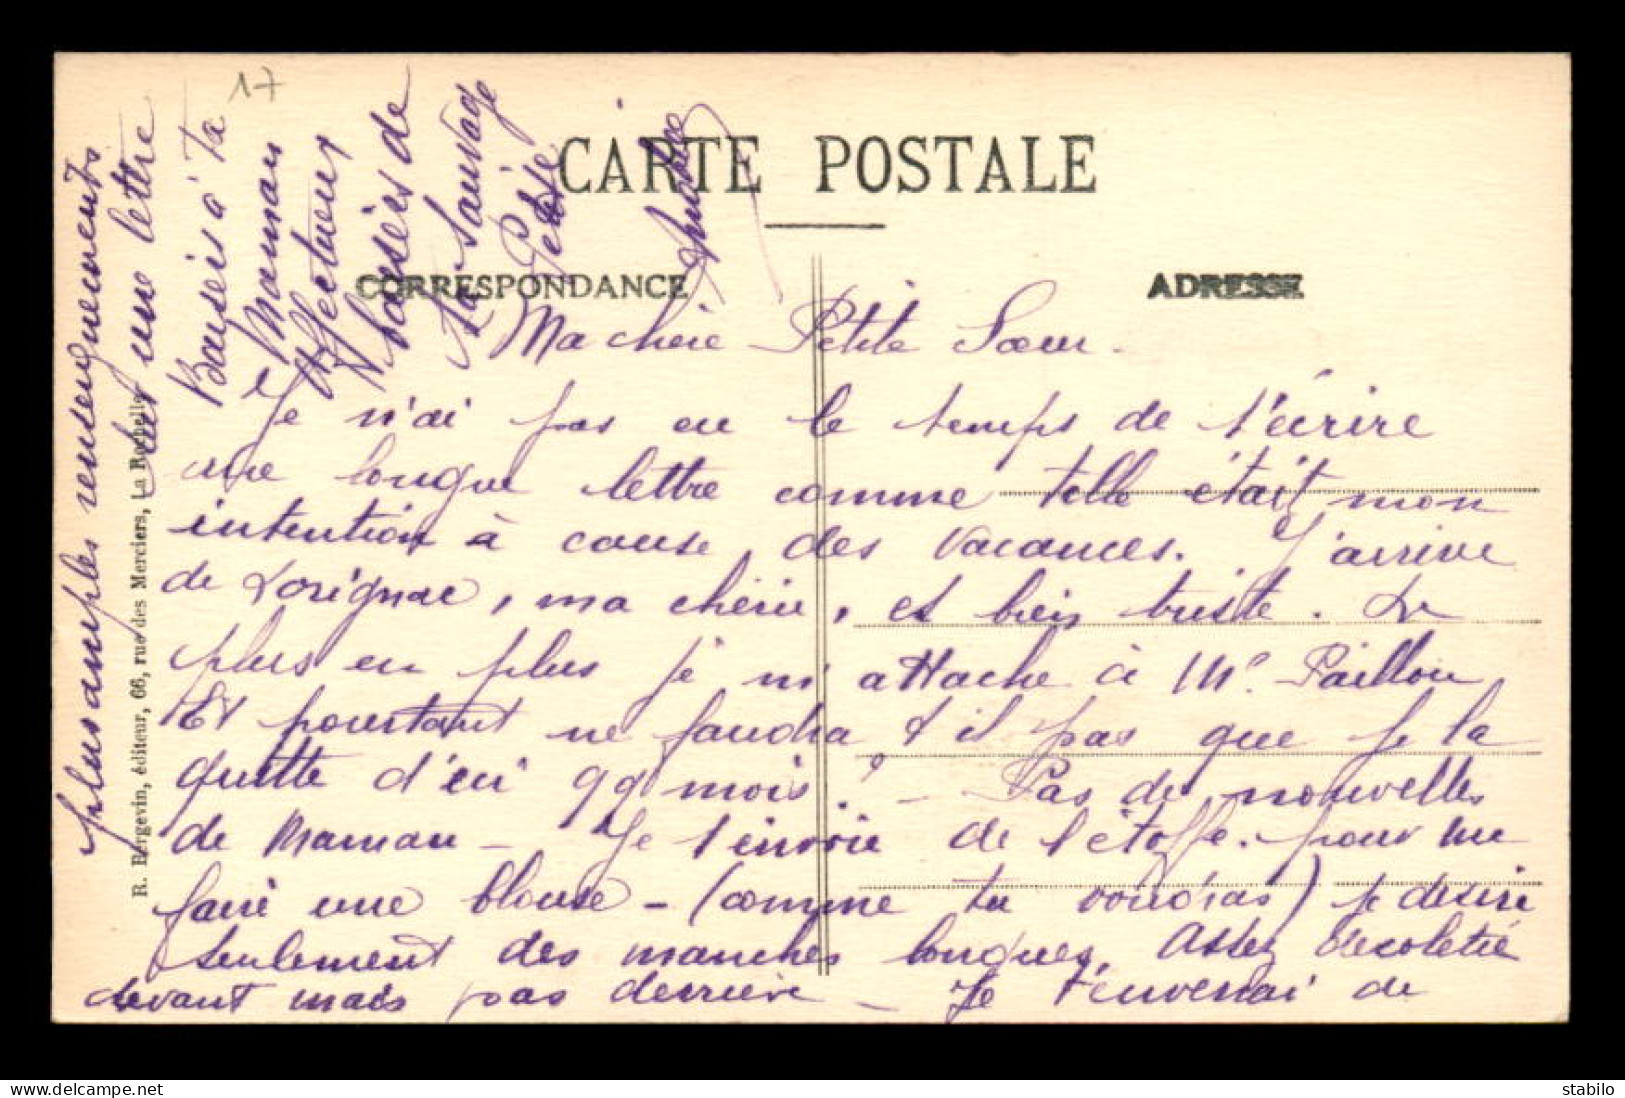 17
CARTE POSTALE
CORRESPONDANCE
ADRESSE
Ma chère Petite Sœur.
Je n'ai pas eu le temps de t'écrire
une longue lettre comme telle était mon
intention à cause des vacances. J'arrive
de Lorignac, ma chérie, et bien triste. De
plus en plus je m'attache à Mr. Paillou
Et pourtant ne faudra t-il pas que je la
quitte d'ici qq mois? - Pas de nouvelles
de Maman - Je t'envoie de l'étoffe pour me
faire une blouse - (comme tu voudras) je désire
seulement des manches longues. Assez décolletié
devant mais pas derrière - Je t'enverrai de
plus amples renseignements
sur une lettre
Baisers à ta
Maman
Affectueux
Baisers de
La Sauvage
Petite
R. Bergevin, éditeur, 66, rue des Merciers, La Rochelle